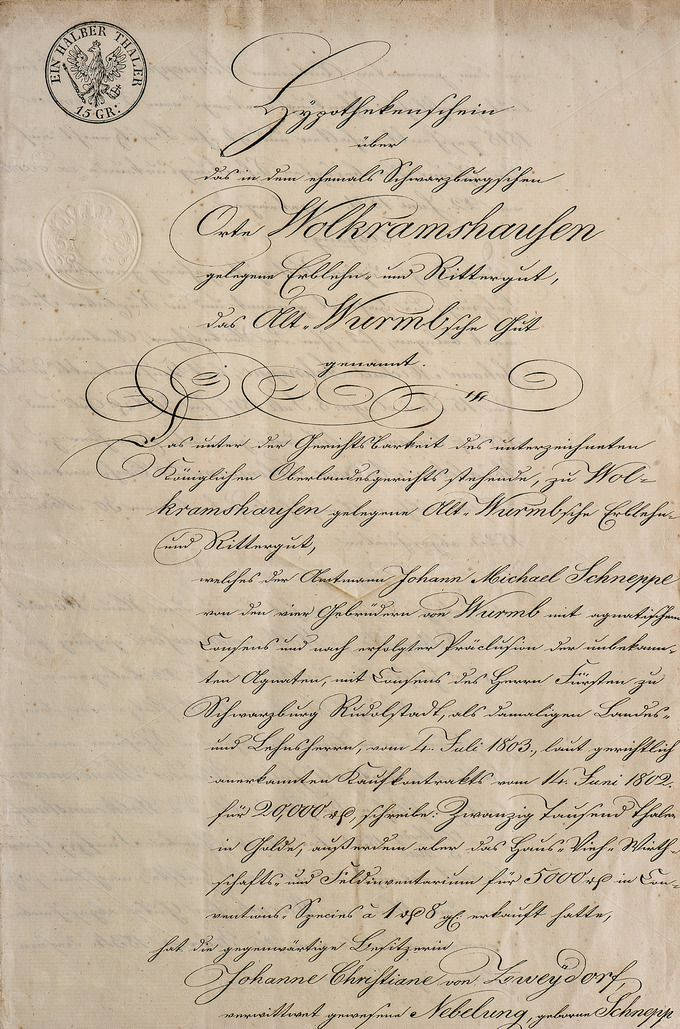 EIN HALBER THALER
15 GR:
Hÿpothekenschein
über
das in dem ehemals Schwarzburgschen
Orte Wolkramshausen
gelegene Erblehn- und Rittergut,
das Alt-Wurmbsche Gut
genannt.
Das unter der Gerichtsbarkeit des unterzeichneten
Königlichen Oberlandesgerichts stehende, zu Wol-
kramshausen gelegene Alt-Wurmbsche Erblehn-
und Rittergut,
welches der Amtmann Johann Michael Schneppe
von den vier Gebrüdern von Wurmb mit agnatischem
Consens und nach erfolgter Präclusion der unbekann-
ten Agnaten, mit Consens des Herrn Fürsten zu
Schwarzburg Rudolstadt, als damaligen Landes-
und Lehnsherrn, vom 4. Juli 1803., laut gerichtlich
anerkannten Kaufkontrakts vom 14. Juni 1802.
für 20,000 rß, schreibe: Zwanzig Tausend Thaler
in Golde, außerdem aber das Haus- Vieh- Wirth-
schafts- und Feldinventarium für 5000 rß in Con-
ventions-Species à 1 rß 8 gr erkauft hatte,
hat die gegenwärtige Besitzerin
Johanne Christiane von Zweÿdorf,
verwittwet gewesene Nebelung, geborne Schnepp